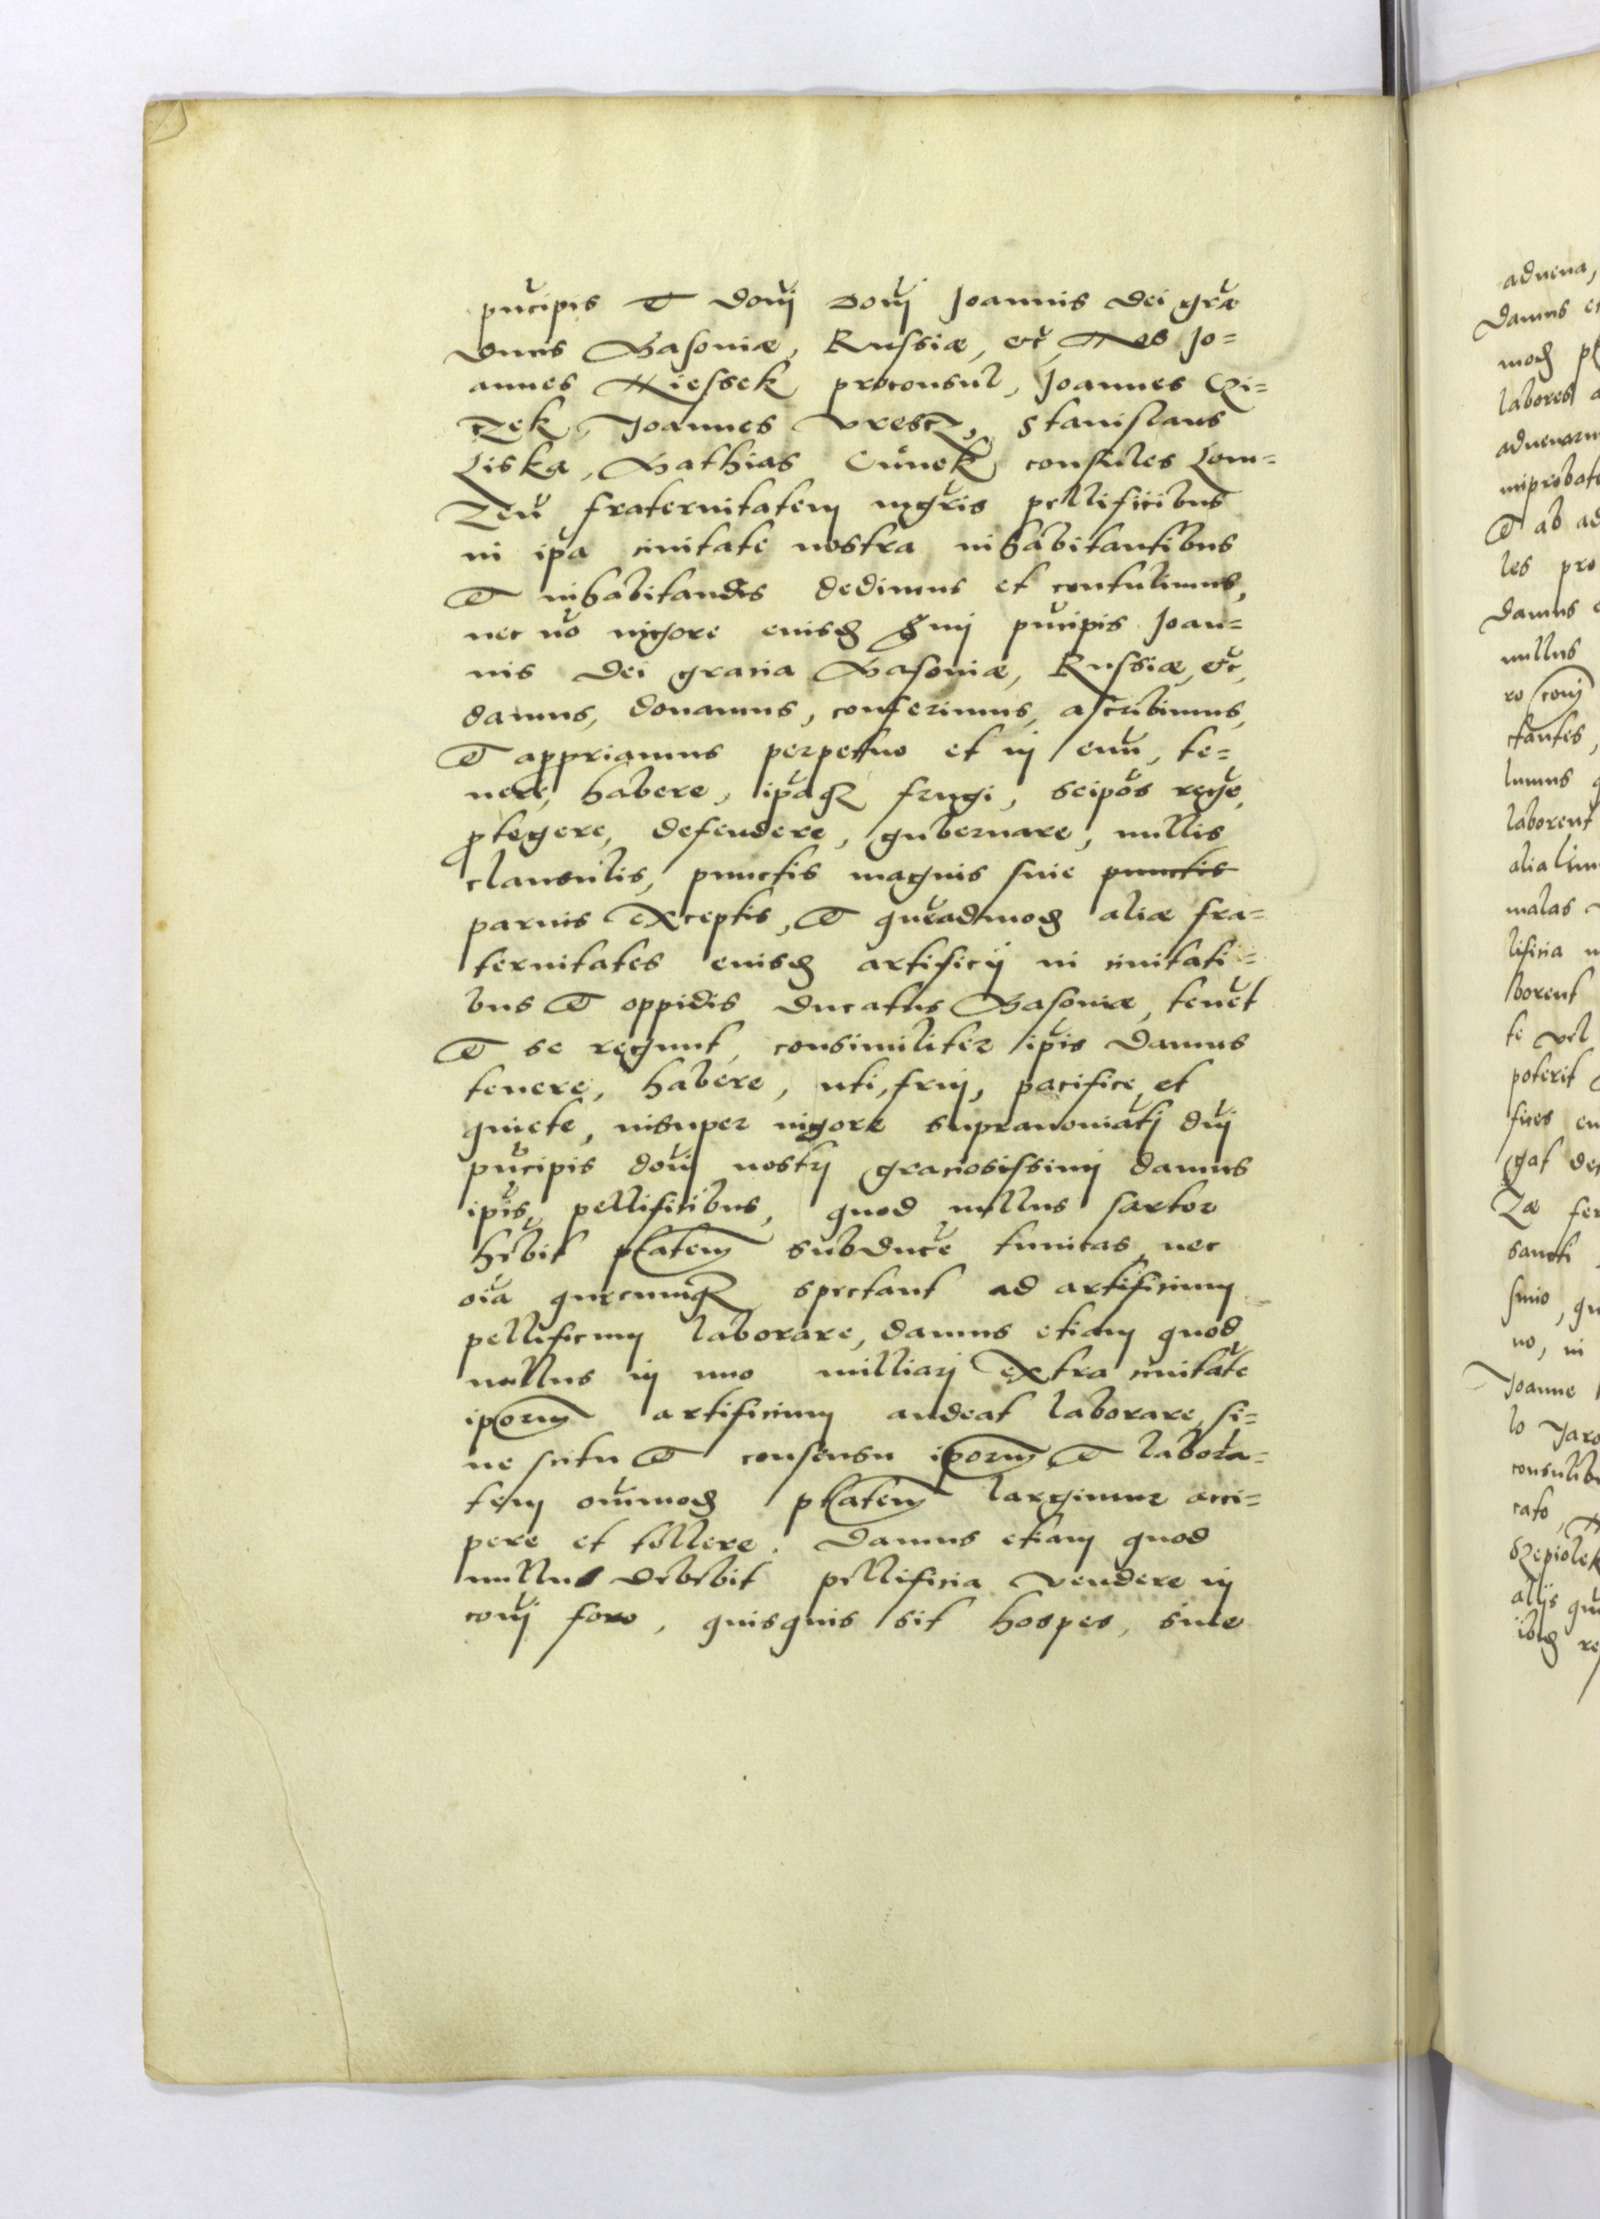 pncipis et domj domj Joannis dei gra
ducis Masoviæ, Russiæ, etc, Nos Jo=
annes Kiessek proconsul, Joannes Czi=
czek, Joannes Vresz, Stanislaus
Liska, Mathias Cunek consules Lom=
zen fraternitatem mgris pellificibus
in ipa civitate nostra inhabitantibus
et inhabitandis dedimus et contulimus,
nec no vigore eiusdem pncipis Joan=
nis Dei gracia Masoviæ, Russiæ, etc,
damus, donamus, conferimus, ascribimus,
et appriamus perpetuo et in evu, te=
nere, habere, ipaque frugi, seipos rege,
ptegere, defendere, gubernare, nullis
clausulis, punctis magnis sive punctis
parvis exceptis, et quеadmod aliæ fra=
ternitates eiusd artificij in civitati=
bus et oppidis ducatus Masoviæ, tenet
et se regunt, consimiliter ipis damus
tenere, habere, uti, frui, pacifice, et
quiete, insuper vigore supranominatj dnj
pncipis domj nostrj graciosissimj damus
ipis pellificibus, quod nullus sartor
hebit ptatem subduce tunicas, nec
oia quecumque spectant ad artificium
pellificum laborare, damus etiam quod
nullus in uno milliarj extra civitate
iporum artificium audeat laborare, si=
ne scitu et consensu iporum, et labora=
tem omimod ptatem largimur acci=
pere et tollere. Damus etiam quod
nullus debebit pellificia vendere in
comj foro, quisquis sit hospes, sive
advena,
damus et
mod
labores
advenarum
improbat
et ab ad
les pro
damus
nullus
ro comj
ctantes,
lumus
laborent
alia
malas
lificia
borent
te vel
poterit
fices
gat
sancti
no, in
Joanne
lo Jaro
consulib
cato,
Szepiolek
alijs
ibid